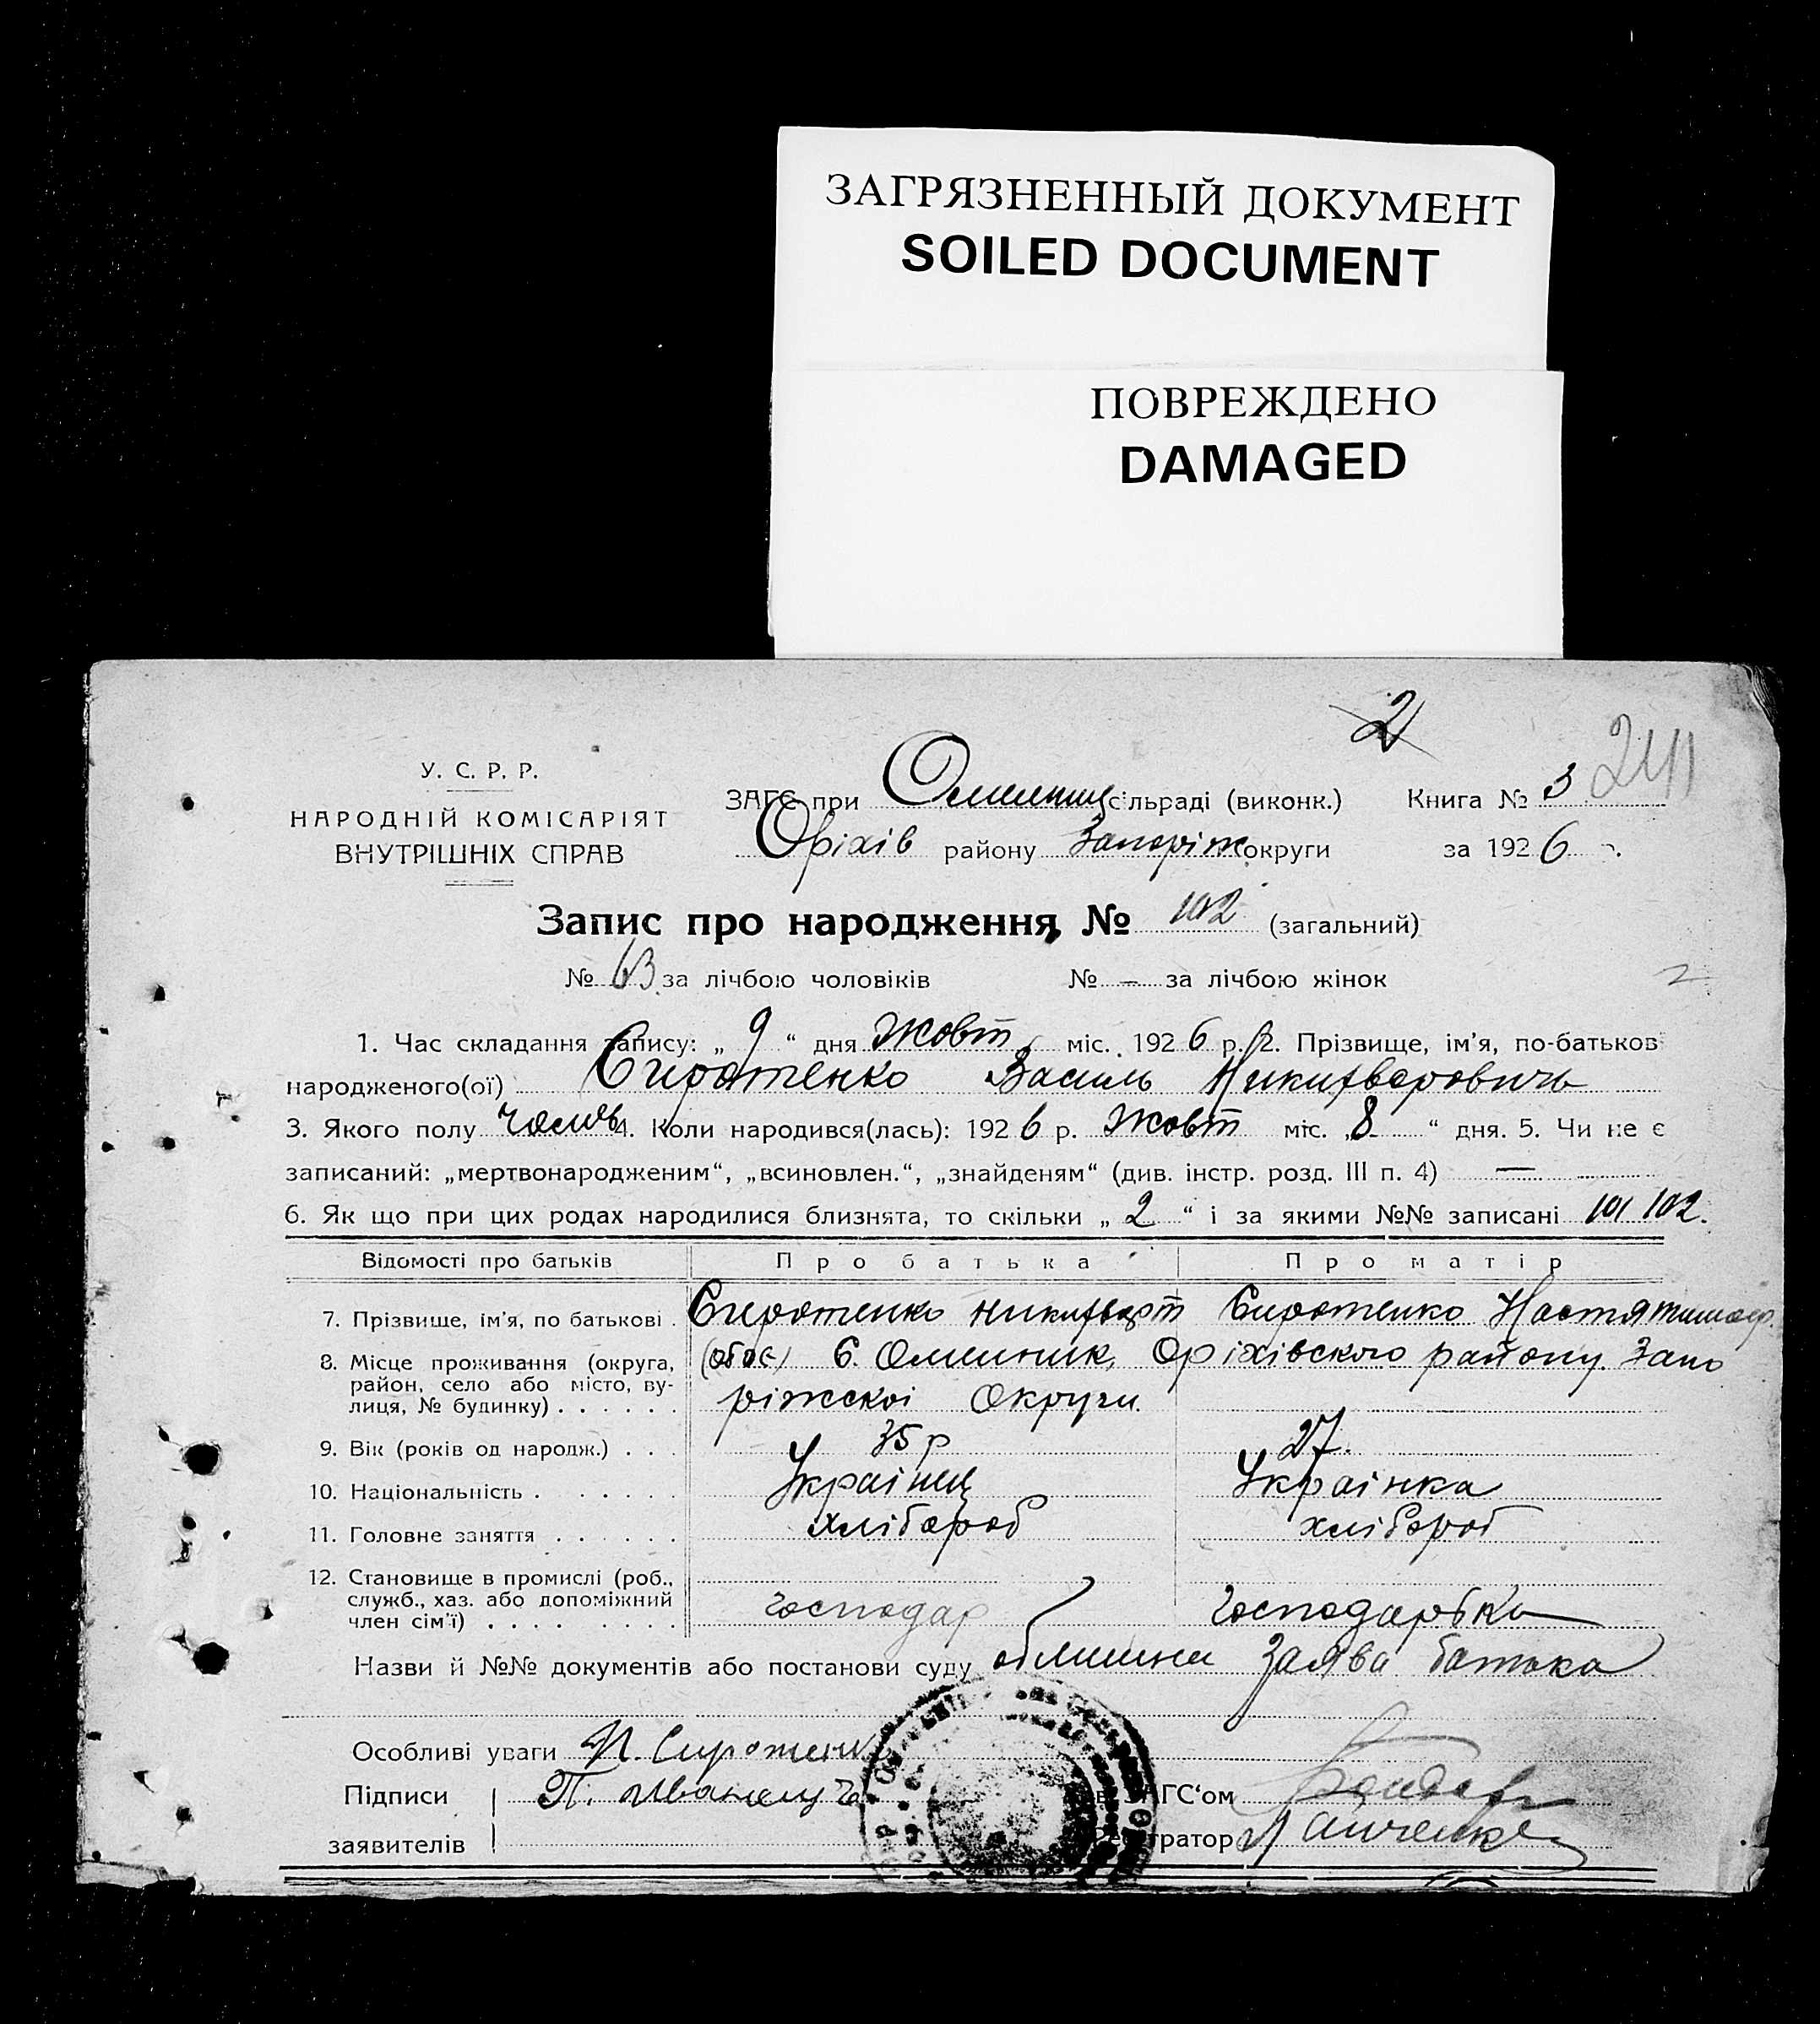 ЗАГРЯЗНЕННЫЙ ДОКУМЕНТ
SOILED DOCUMENT
ПОВРЕЖДЕНО
DAMAGED
2
У. С. Р. Р.
НАРОДНІЙ КОМІСАРІЯТ
ВНУТРІШНІХ СПРАВ
ЗАГС при Омельниц сільраді (виконк.) Книга № 3 241
Оріхів району Запоріж округи за 1926 р.
Запис про народження, № 102 (загальний)
№ 63 за лічбою чоловіків № — за лічбою жінок
1. Час складання запису: „ 9 “ дня Жовт міс. 1926 р. 2. Прізвище, ім’я, по-батьков
народженого(ої) Сиротенко Василь Никифорович
3. Якого полу чолов 4. Коли народився(лась): 1926 р. Жовт міс. „8 “ дня. 5. Чи не є
записаний: „мертвонародженим“, „всиновлен.“, „знайденям“ (див. інстр. розд. III п. 4) —
6. Як що при цих родах народилися близнята, то скільки „ 2 “ і за якими №№ записані 101 102.
Відомості про батьків Про батька Про матір
7. Прізвище, ім’я, по батькові . Сиротенко Сиротенко Настя
8. Місце проживання (округа, район, село або місто, вулиця, № будинку) . . . . . . (обоє) С. Омельник, Оріхівского району. Запо
ріжскоі Округи.
9. Вік (років од народж.) . . . 35 р 27.
10. Національність . . . . . . Украінец Украінка
11. Головне заняття . . . . . . хлібороб хлібороб
12. Становище в промислі (роб., служб., хаз. або допоміжний член сім’ї) . . . . . . . . господар господарька
Назви й №№ документів або постанови суду Заява батька
Особливі уваги Н. Сиротенко
Підписи П. ЗАГС‘ом
заявителів Реєстратор